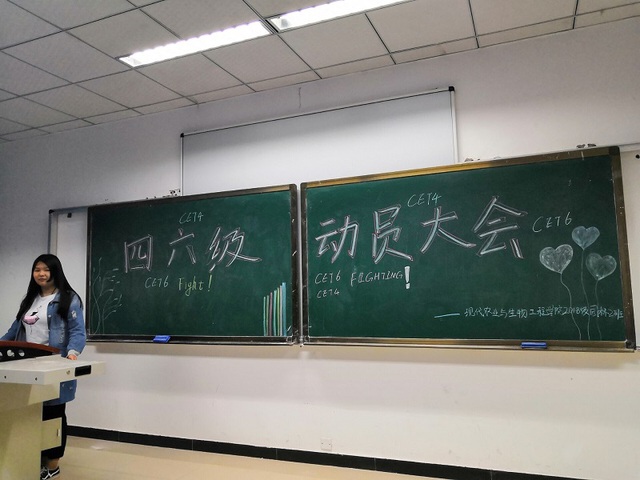 CET4
四六级
CET6 Fight!
CET4
动员大会
CET6
CET6 FIGHTING!
CET4
——现代农业与生物工程学院2018级园林2班